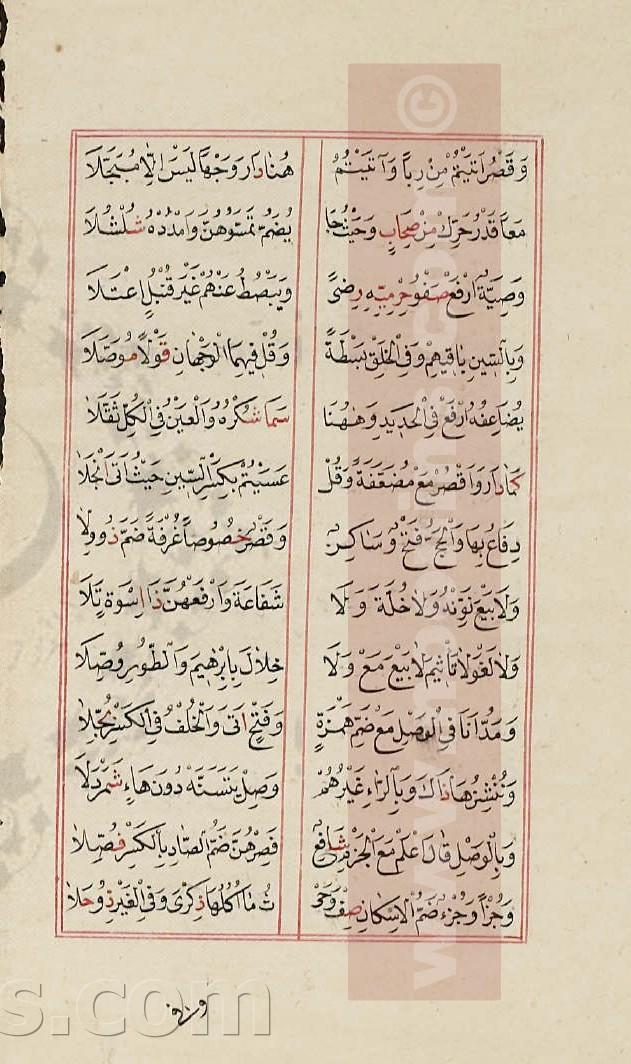 وَقَصْرُ اَتَيْتُمْ مِنْ رِباً وَآتَيْتُمُ هُنَا دَارَ وَجْهاً لَيْسَ اِلَّا مُبَجَّلَا
مَعاً قَدْرُ حَرِّكْ مِنْ صِحَابٍ وَحَيْثُ جَا يُضَمُّ تَمَسُّوهُنَّ وَامْدُدْهُ شُلْشُلَا
وَصِيَّةً ارْفَعْ صَفْوُ حِرْمِيِّهِ رِضىً وَيَبْصُطُ عَنْهُمْ غَيْرَ قُنْبُلٍ اعْتَلَا
وَبِالسِّينِ بَاقِيهِمْ وَفِي الْخَلْقِ بَسْطَةً وَقُلْ فِيهِمَا الْوَجْهَانِ قَوْلاً مُوَصَّلَا
يُضَاعِفَهُ ارْفَعْ فِي الْحَدِيدِ وَهٰهُنَا سَمَا شُكْرُهُ وَالْعَيْنُ فِي الْكُلِّ ثُقِّلَا
كَمَا دَارَ وَاقْصُرْ مَعْ مُضَعَّفَةً وَقُلْ عَسَيْتُمْ بِكَسْرِ السِّينِ حَيْثُ اَتَى انْجَلَا
دِفَاعُ بِهَا وَالْحَجِّ فَتْحٌ وَسَاكِنٌ وَقَصْرٌ خُصُوصاً غُرْفَةً ضَمَّ ذُو وِلَا
وَلَا بَيْعَ نَوِّنْهُ وَلَا خُلَّةٌ وَلَا شَفَاعَةَ وَارْفَعْهُنَّ ذَا اِسْوَةٍ تَلَا
وَلَا لَغْوَ لَا تَأْثِيمَ لَا بَيْعَ مَعْ وَلَا خِلَالَ بِاِبْرٰهِيمَ وَالطُّورِ وُصِّلَا
وَمَدُّ اَنَا فِي الْوَصْلِ مَعْ ضَمِّ هَمْزَةٍ وَفَتْحٍ اَتَى وَالْخُلْفُ فِي الْكَسْرِ بُجِّلَا
وَنُنْشِزُهَا ذَاكَ وَبِالرَّاءِ غَيْرُهُمْ وَصِلْ يَتَسَنَّهْ دُونَ هَاءٍ شَمَرْدَلَا
وَبِالْوَصْلِ قَالَ اعْلَمْ مَعَ الْجَزْمِ شَافِعٌ فَصُرْهُنَّ ضَمُّ الصَّادِ بِالْكَسْرِ فُصِّلَا
وَجُزْأً وَجُزْءٌ ضَمَّ الْاِسْكَانَ صِفْ وَحَيْ ثُ مَا اُكُلُهَا ذِكْرَى وَفِي الْغَيْرِ ذُو حُلَا
وفي